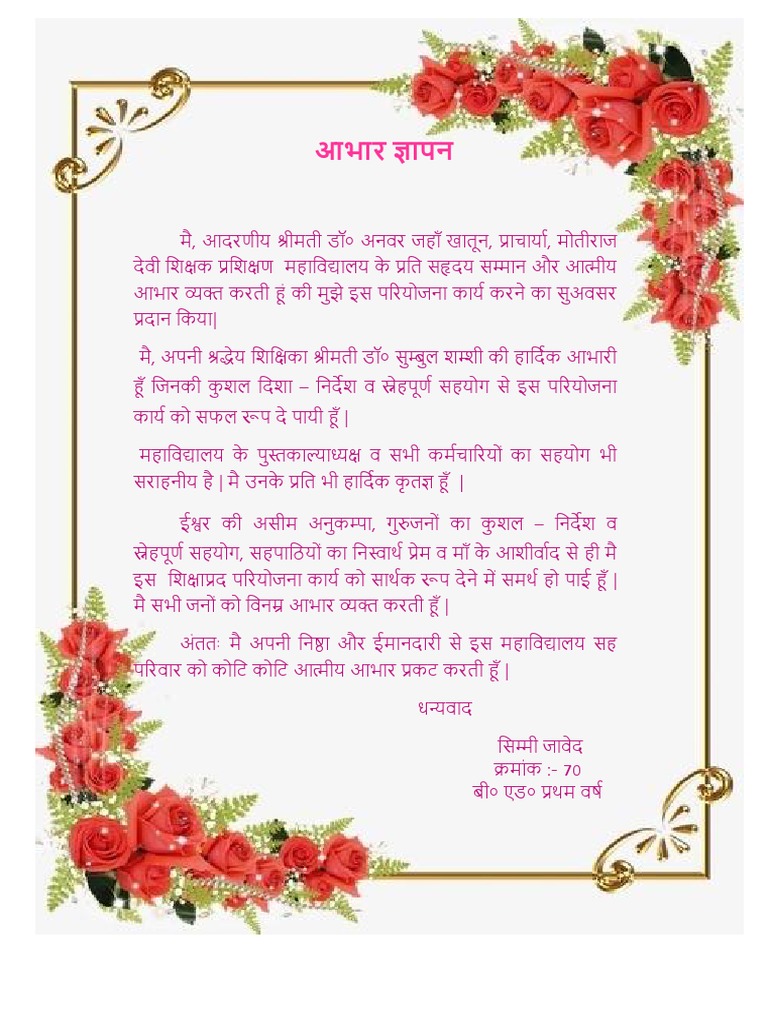 आभार ज्ञापन
मै, आदरणीय श्रीमती डॉ० अनवर जहाँ खातून, प्राचार्या, मोतीराज
देवी शिक्षक प्रशिक्षण महाविद्यालय के प्रति सहृदय सम्मान और आत्मीय
आभार व्यक्त करती हूं की मुझे इस परियोजना कार्य करने का सुअवसर
प्रदान किया|
मै, अपनी श्रद्धेय शिक्षिका श्रीमती डॉ० सुम्बुल शम्शी की हार्दिक आभारी
हूँ जिनकी कुशल दिशा – निर्देश व स्नेहपूर्ण सहयोग से इस परियोजना
कार्य को सफल रूप दे पायी हूँ |
महाविद्यालय के पुस्तकाल्याध्यक्ष व सभी कर्मचारियों का सहयोग भी
सराहनीय है | मै उनके प्रति भी हार्दिक कृतज्ञ हूँ |
ईश्वर की असीम अनुकम्पा, गुरुजनों का कुशल – निर्देश व
स्नेहपूर्ण सहयोग, सहपाठियों का निस्वार्थ प्रेम व माँ के आशीर्वाद से ही मै
इस शिक्षाप्रद परियोजना कार्य को सार्थक रूप देने में समर्थ हो पाई हूँ |
मै सभी जनों को विनम्र आभार व्यक्त करती हूँ |
अंततः मै अपनी निष्ठा और ईमानदारी से इस महाविद्यालय सह
परिवार को कोटि कोटि आत्मीय आभार प्रकट करती हूँ |
धन्यवाद
सिम्मी जावेद
क्रमांक :- 70
बी० एड० प्रथम वर्ष